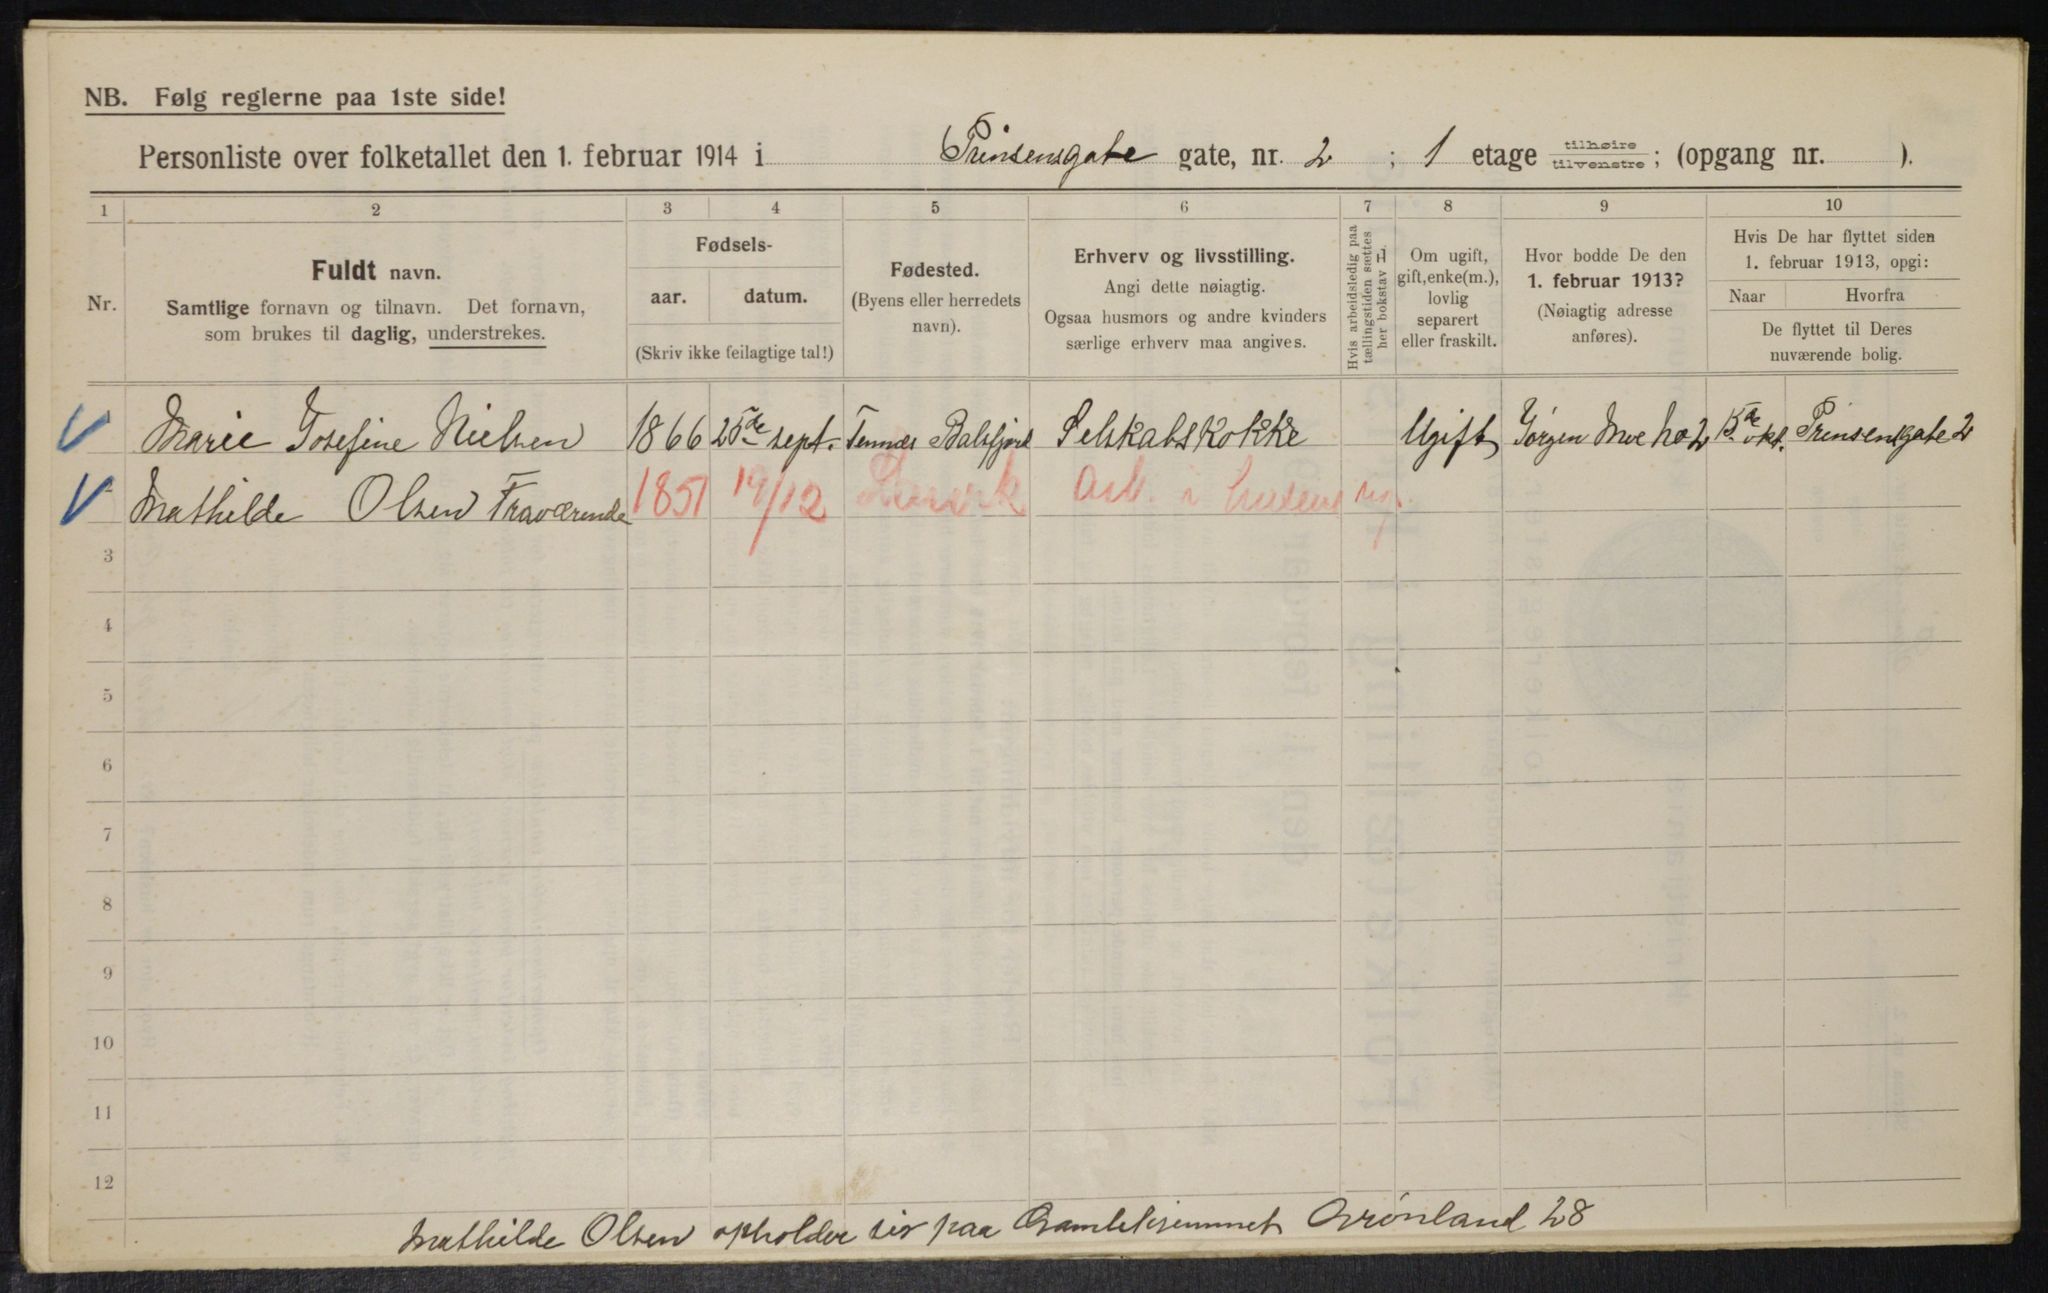 NB. Følg reglerne paa 1ste side!
Personliste over folketallet den 1. februar 1914 i Prinsensgate gate, nr. 2 ; 1 etage tilhøire tilvenstre ; (opgang nr. ).
1 2 3 4 5 6 7 8 9 10
Nr.
Fuldt navn.
Samtlige fornavn og tilnavn. Det fornavn,
som brukes til daglig, understrekes.
Fødsels-
aar. datum.
(Skriv ikke feilagtige tal!)
Fødested.
(Byens eller herredets
navn).
Erhverv og livsstilling.
Angi dette nøiagtig.
Ogsaa husmors og andre kvinders
særlige erhverv maa angives.
Hvis arbeidsledig paa
tællingstiden sættes
her bokstav L.
Om ugift,
gift, enke(m.),
lovlig
separert
eller fraskilt.
Hvor bodde De den
1. februar 1913?
(Nøiagtig adresse
anføres).
Hvis De har flyttet siden
1. februar 1913, opgi:
Naar Hvorfra
De flyttet til Deres
nuværende bolig.
V Marie Josefine Nielsen 1866 25de sept. Tennes Balsfjord Selskabskokke Ugift Jørgen Moe no 2 okt. Prinsensgate 2
V Mathilde Olsen Fraværende 1851 19/12 Arb. i ug.
3
4
5
6
7
8
9
10
11
12
Mathilde Olsen opholder sig paa Gamlehjemmet Grønland 28